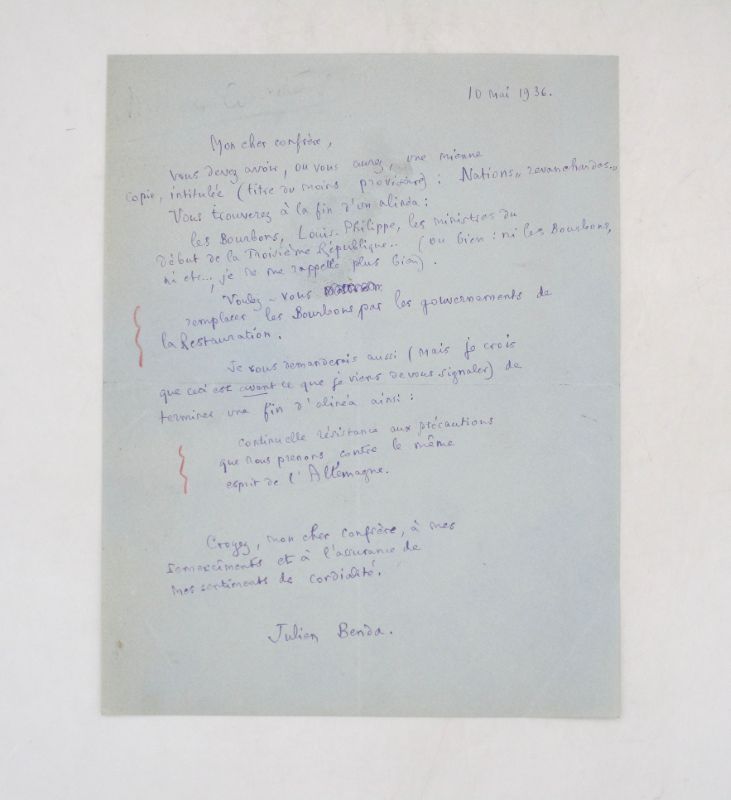 10 Mai 1936.
Mon cher confrère,
Vous devez avoir, ou vous aurez, une mienne
copie, intitulée (titre du moins provisoire) : Nations „ revanchardes „
Vous trouverez à la fin d'un alinéa :
les Bourbons, Louis-Philippe, les ministres du
début de la Troisième République.. (ou bien : ni les Bourbons,
ni etc..., je ne me rappelle plus bien).
Voulez-vous
remplacer les Bourbons par les gouvernements de
la Restauration.
Je vous demanderais aussi (mais je crois
que ceci est avant ce que je viens de vous signaler) de
terminer une fin d'alinéa ainsi :
continuelle résistance aux précautions
que nous prenons contre le même
esprit de l'Allemagne.
Croyez, mon cher confrère, à mes
remerciements et à l'assurance de
mes sentiments de cordialité.
Julien Benda.